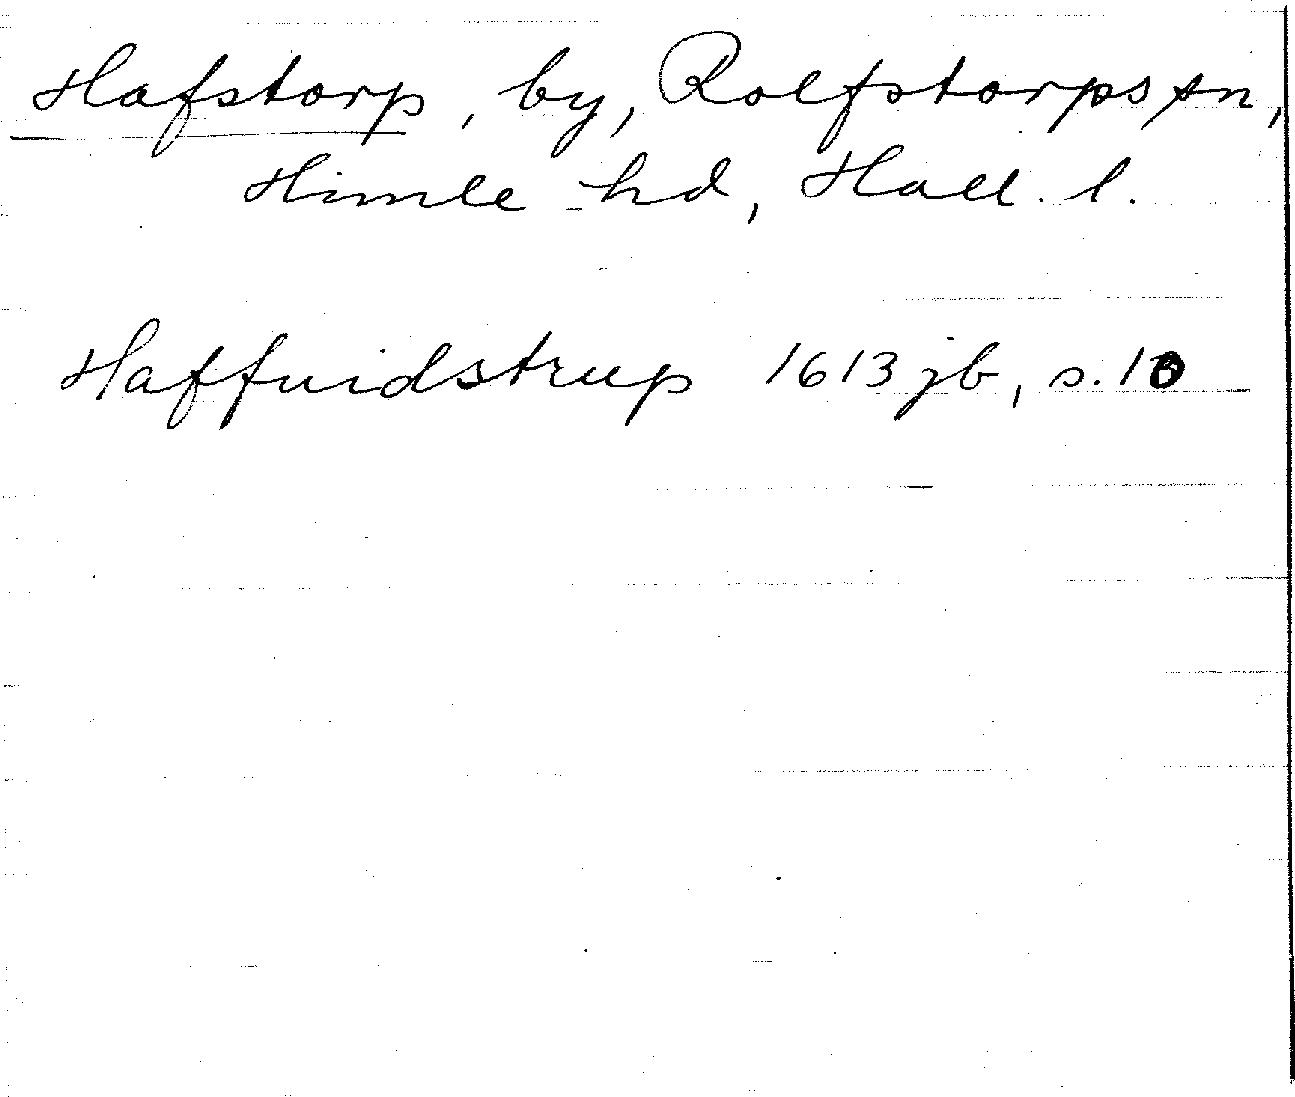 Hafstorp, by, Rolfstorps sn,
Himle hd, Hall. l.
Haffuidstrup 1613 jb, s. 10